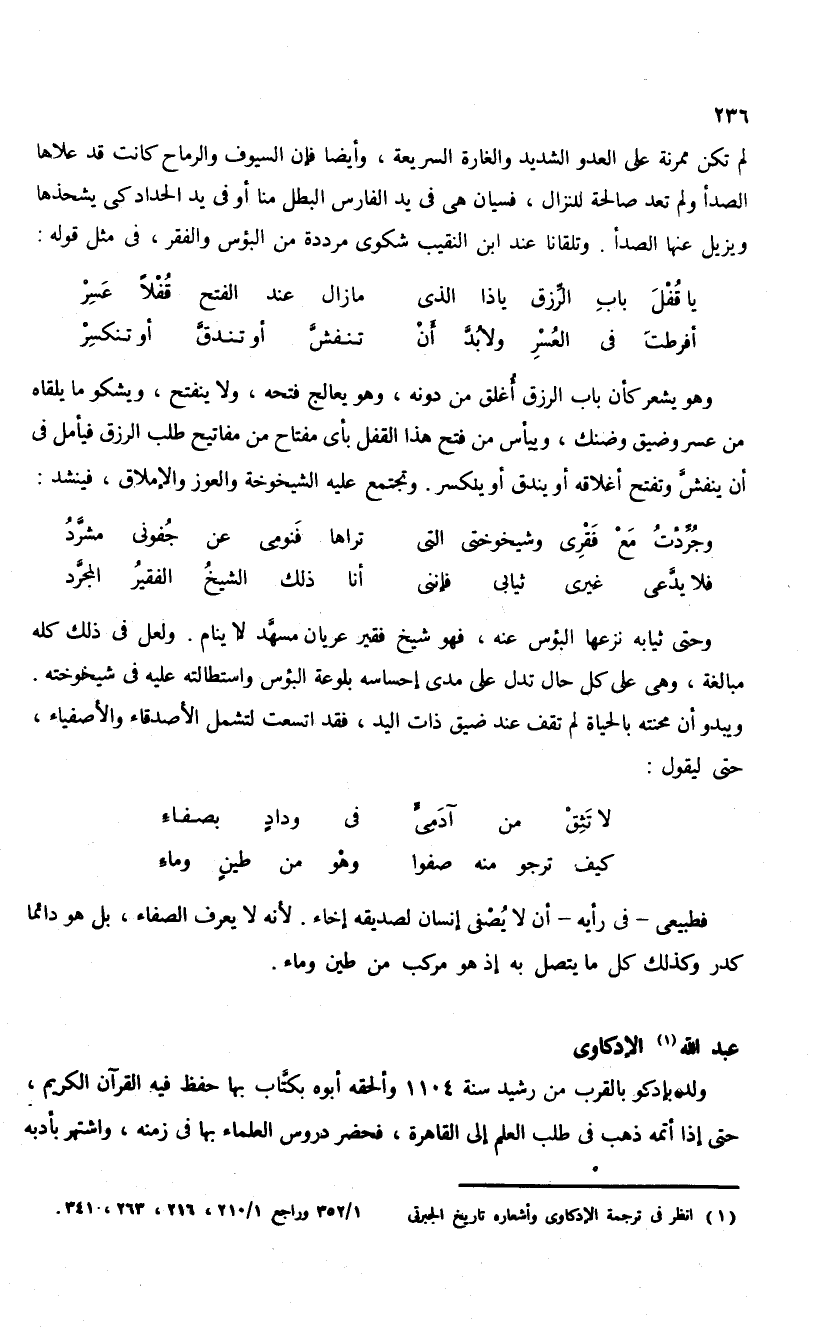 ٢٣٦
لم تكن ممرنة على العدو الشديد والغارة السريعة ، وأيضا فإن السيوف والرماح كانت قد علاها
الصدأ ولم تعد صالحة للنزال ، فسيان هى فى يد الفارس البطل منا أو فى يد الحداد كى يشحذها
ويزيل عنها الصدأ . وتلقانا عند ابن النقيب شكوى مرددة من البؤس والفقر ، فى مثل قوله :
يا قُفْلَ بابِ الرِّزق ياذا الذى مازال عند الفتح قُفْلاً عَسِرْ
أفرطتَ فى العُسْرِ ولابُدَّ أَنْ تنفشَّ أو تندقَّ أو تنكسِرْ
وهو يشعر كأن باب الرزق أُغلق من دونه ، وهو يعالج فتحه ، ولا ينفتح ، ويشكو ما يلقاه
من عسر وضيق وضنك ، وييأس من فتح هذا القفل بأى مفتاح من مفاتيح طلب الرزق فيأمل فى
أن ينفشَّ وتفتح أغلاقه أو يندق أو ينكسر . وتجتمع عليه الشيخوخة والعوز والإملاق ، فينشد :
وجُرِّدْتُ مَعْ فَقْرِى وشيخوختى التى تراها فَنومى عن جُفونى مشرَّدُ
فلا يدَّعى غيرى ثيابى فإننى أنا ذلك الشيخُ الفقيرُ المجرَّد
وحتى ثيابه نزعها البؤس عنه ، فهو شيخ فقير عريان مسهَّد لا ينام . ولعل فى ذلك كله
مبالغة ، وهى على كل حال تدل على مدى إحساسه بلوعة البؤس واستطالته عليه فى شيخوخته .
ويبدو أن محنته بالحياة لم تقف عند ضيق ذات اليد ، فقد اتسعت لتشمل الأصدقاء والأصفياء ،
حتى ليقول :
لا تَثِقْ من آدَمِىٍّ فى ودادٍ بصفاء
كيف ترجو منه صفوا وهْو من طينٍ وماءِ
فطبيعى – فى رأيه – أن لا يُصْفى إنسان لصديقه إخاء . لأنه لا يعرف الصفاء ، بل هو دائما
كدر وكذلك كل ما يتصل به إذ هو مركب من طين وماء .
عبد الله (١) الإدكاوى
ولد بإدكو بالقرب من رشيد سنة ١١٠٤ وألحقه أبوه بكتَّاب بها حفظ فيه القرآن الكريم ،
حتى إذا أتمه ذهب فى طلب العلم إلى القاهرة ، فحضر دروس العلماء بها فى زمنه ، واشتهر بأدبه
(١) انظر فى ترجمة الإدكاوى وأشعاره تاريخ الجبرتى ٣٥٢/١ وراجع ٢١٠/١ ، ٢١٦ ، ٢٦٣ ، ٣٤١٠ .